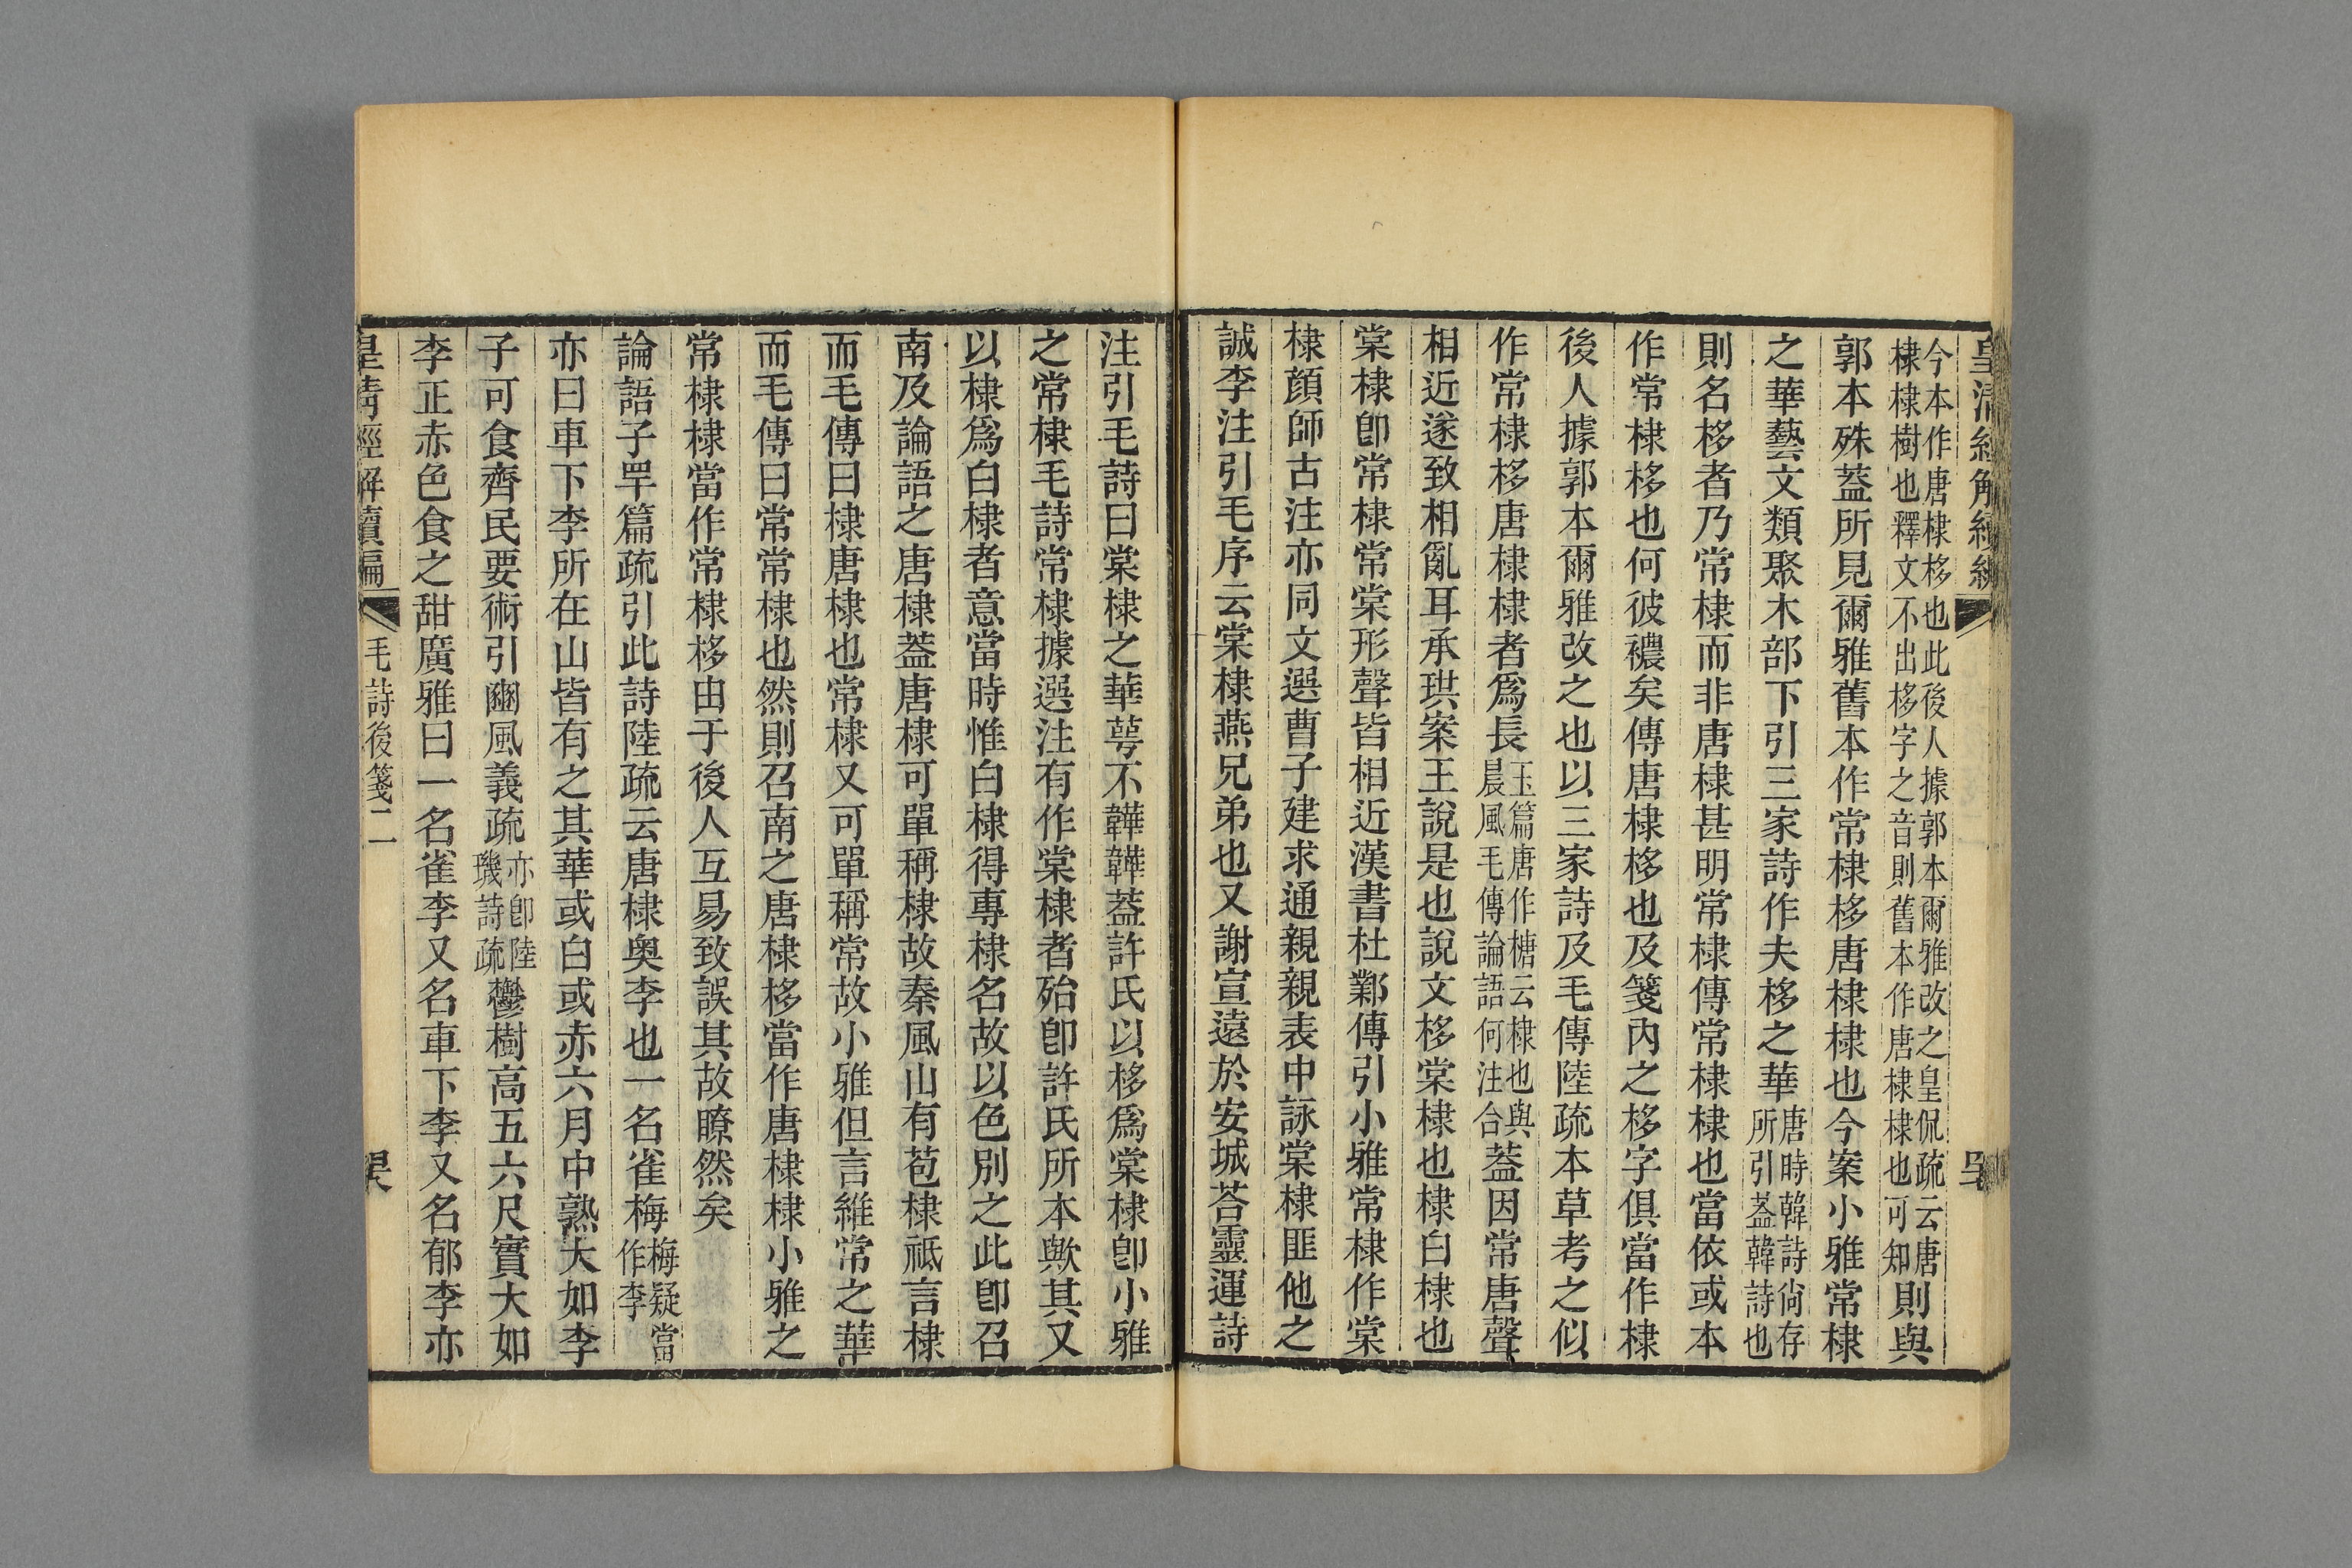 今本作唐棣栘也此後人據郭本爾雅改之皇侃疏云唐
棣棣樹也釋文不出栘字之音則舊本作唐棣棣也可知
則與
郭本殊葢所見爾雅舊本作常棣栘唐棣棣也今案小雅常棣
之華藝文類聚木部下引三家詩作夫栘之華
唐時韓詩尙存
所引葢韓詩也
則名栘者乃常棣而非唐棣甚明常棣傳常棣棣也當依或本
作常棣栘也何彼襛矣傳唐棣栘也及箋內之栘字俱當作棣
後人據郭本爾雅改之也以三家詩及毛傳陸疏本草考之似
作常棣栘唐棣棣者爲長
玉篇唐作榶云棣也與
晨風毛傳論語何注合
葢因常唐聲
相近遂致相亂耳承珙案王說是也說文栘棠棣也棣白棣也
棠棣卽常棣常棠形聲皆相近漢書杜鄴傳引小雅常棣作棠
棣顏師古注亦同文選曹子建求通親親表中詠棠棣匪他之
誠李注引毛序云棠棣燕兄弟也又謝宣遠於安城荅靈運詩
注引毛詩曰棠棣之華萼不韡韡葢許氏以栘爲棠棣卽小雅
之常棣毛詩常棣據選注有作棠棣者殆卽許氏所本歟其又
以棣爲白棣者意當時惟白棣得專棣名故以色別之此卽召
南及論語之唐棣葢唐棣可單稱棣故秦風山有苞棣祗言棣
而毛傳曰棣唐棣也常棣又可單稱常故小雅但言維常之華
而毛傳曰常常棣也然則召南之唐棣栘當作唐棣棣小雅之
常棣棣當作常棣栘由于後人互易致誤其故瞭然矣
論語子罕篇疏引此詩陸疏云唐棣奧李也一名雀梅
梅疑當
作李
亦曰車下李所在山皆有之其華或白或赤六月中熟大如李
子可食齊民要術引豳風義疏
亦卽陸
璣詩疏
鬱樹高五六尺實大如
李正赤色食之甜廣雅曰一名雀李又名車下李又名郁李亦
毛詩後箋二